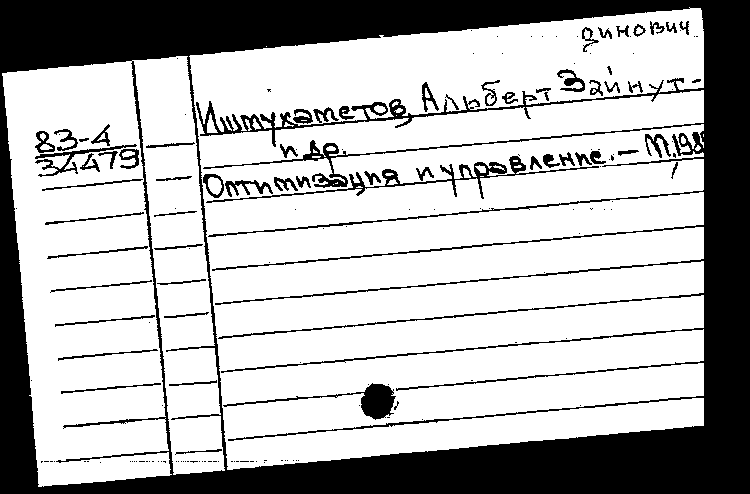 динович
Иштукаметов, Альберт Зайнут-
83-4
34479
и др.
Оптимизация и управление. – М, 198